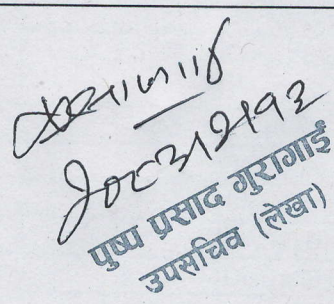 २०८३।२।१२
पुष्प प्रसाद गुरागाईं
उपसचिव (लेखा)